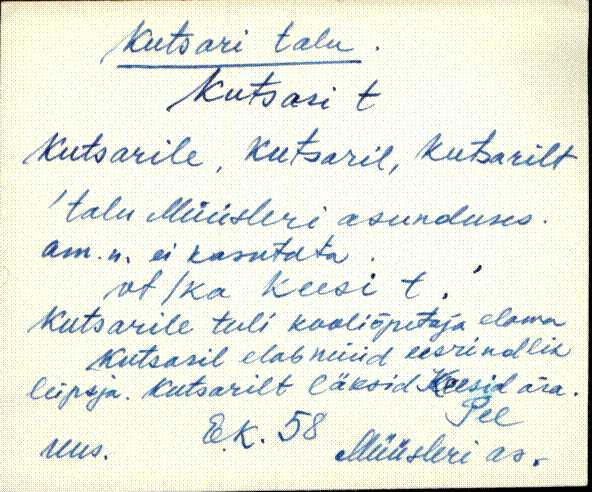 Kutsari talu.
Kutsari t
Kutsarile, Kutsaril, Kutsarilt
'talu Müüsleri asunduses.
am. n. ei kasutata.
vt /ka Keesi t.'
Kutsarile tuli kooliõpetaja elama
Kutsaril elab nüüd eesrindlik
lüpsja. Kutsarilt läksid Keesid ära.
Pee
E.K. 58
Müüsleri as.